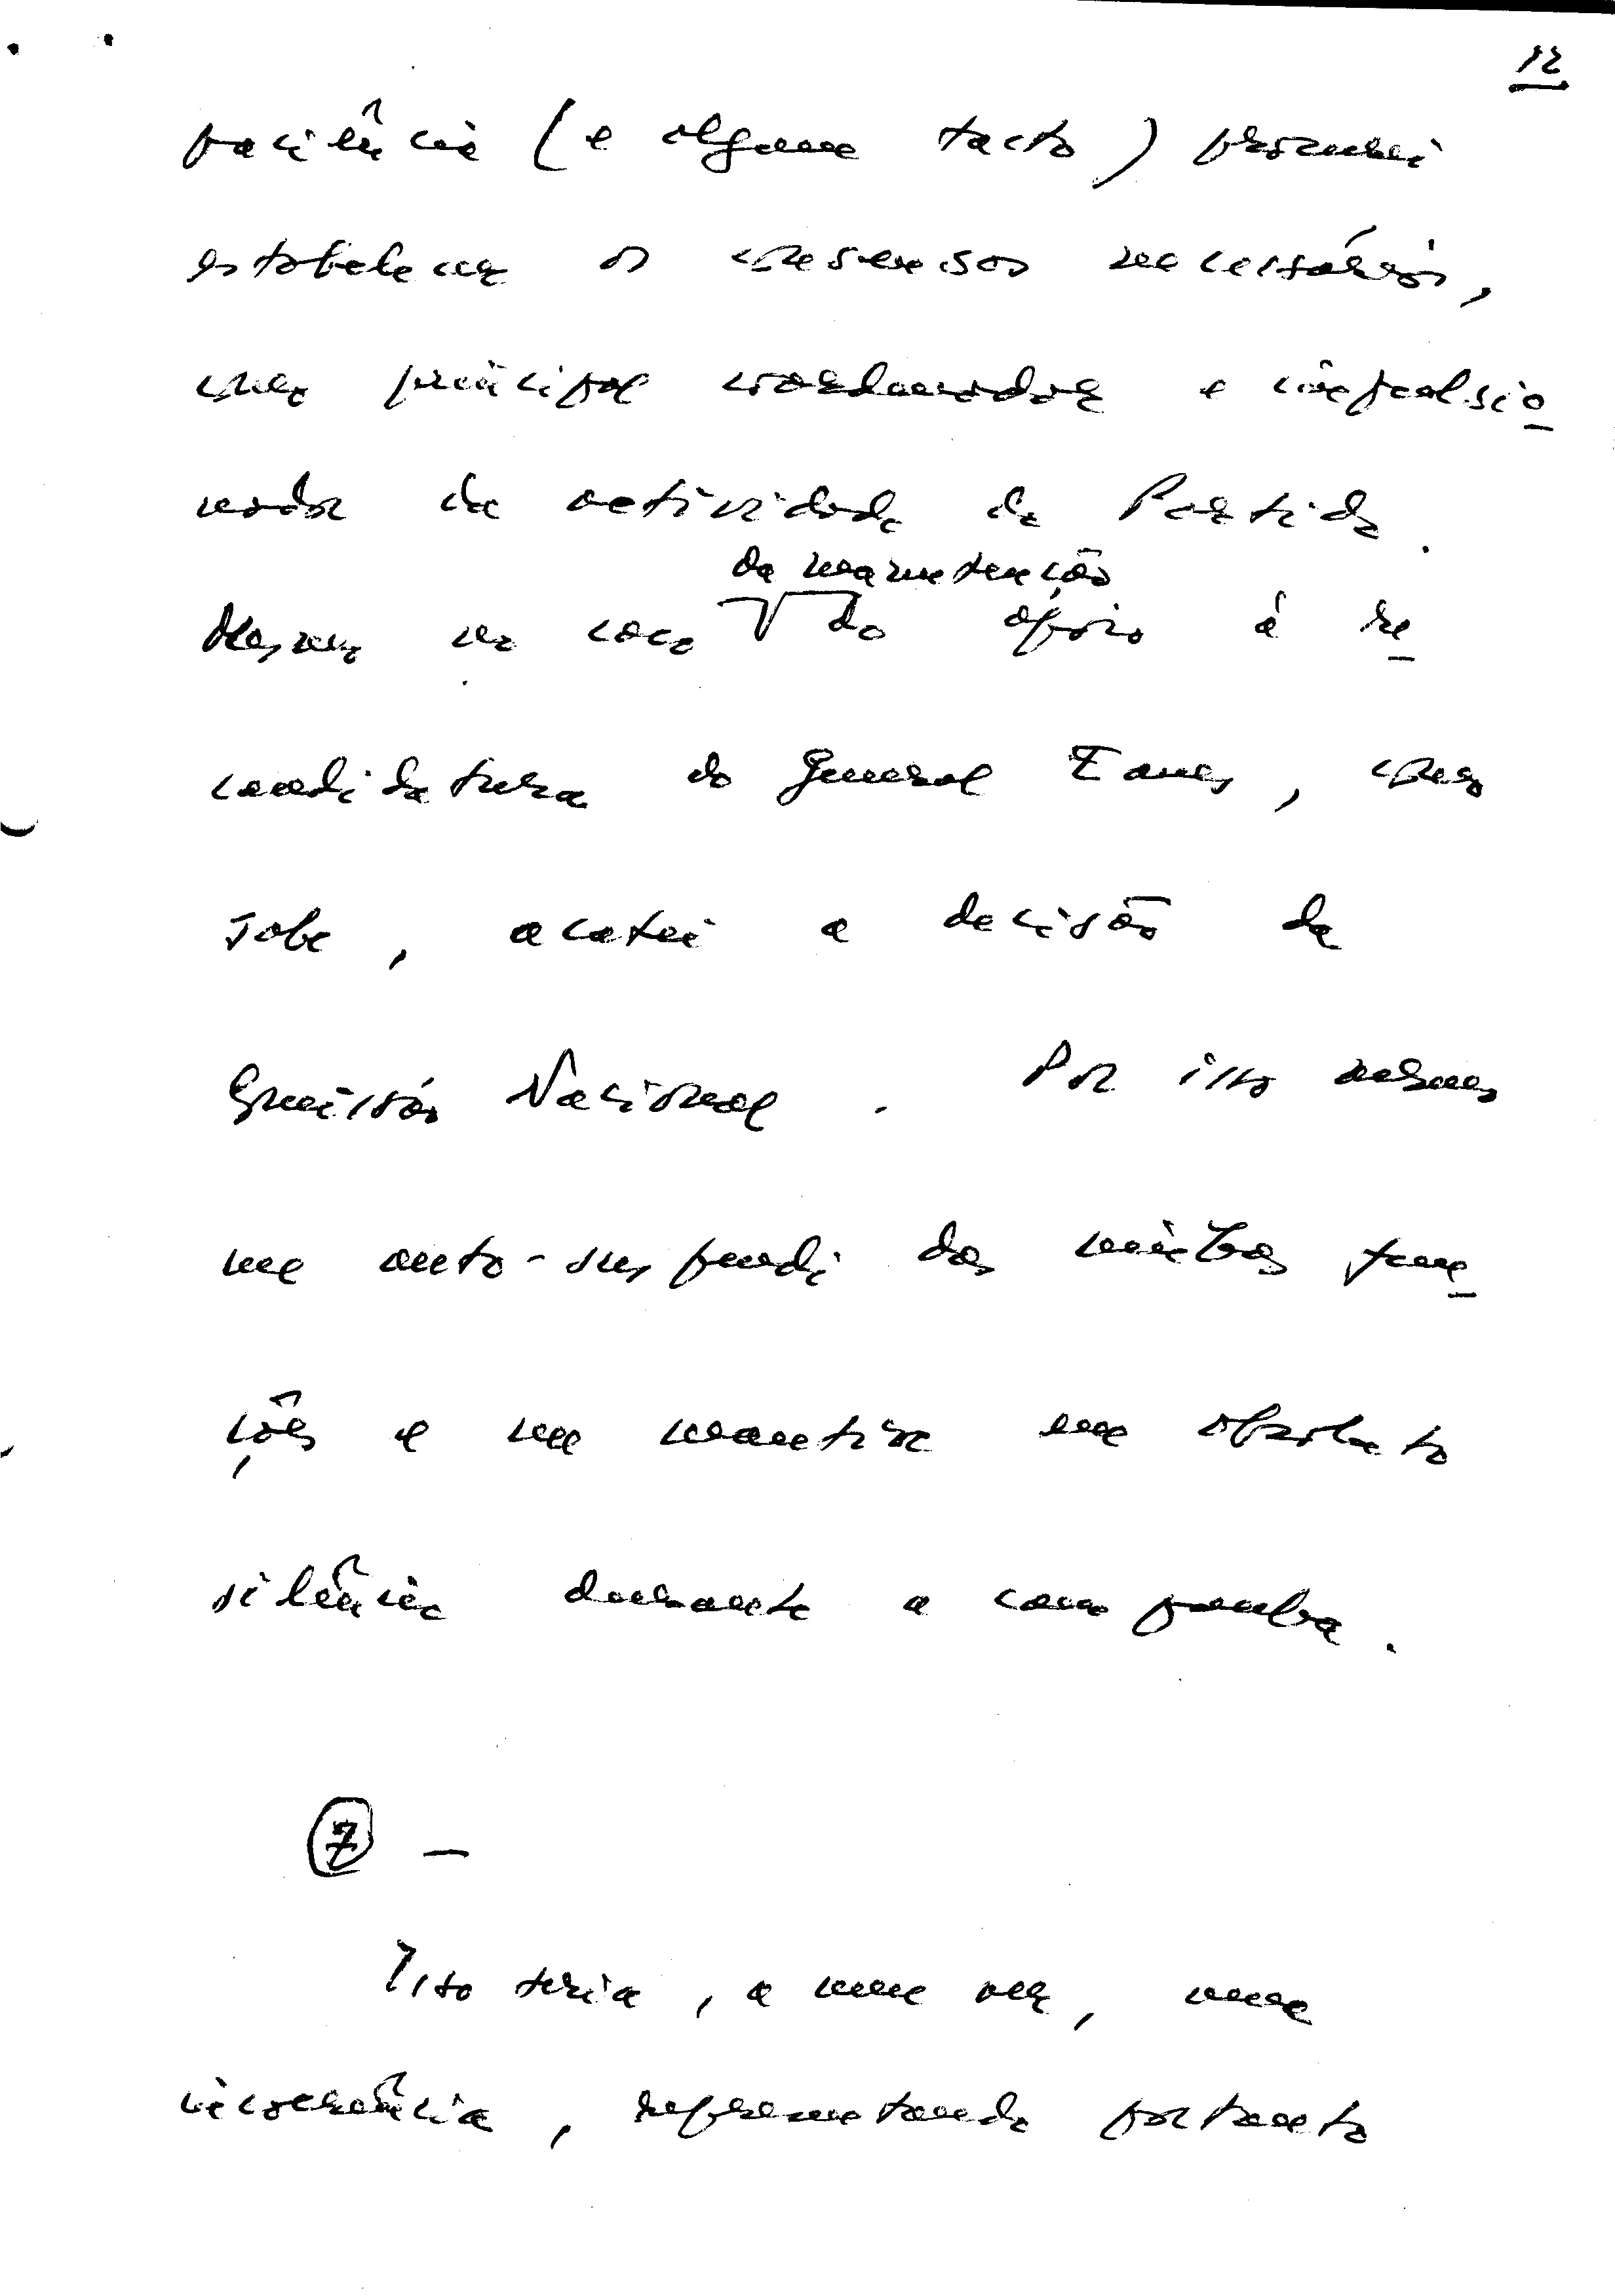 12
paciência (e algum tacto) procurei
estabelecer os consensos necessários,
como principal coordenador e impulsio
nador da actividade do Partido.
da manutenção
Mesmo no caso do apoio à re
candidatura do General Eanes, como
sabe, acatei a decisão da
Comissão Nacional. Por isso mesmo
me auto-suspendi das minhas fun
ções e me mantive em absoluto
silêncio durante a campanha.
7 -
Isso seria, a meu ver, uma
incoerência, representando portanto